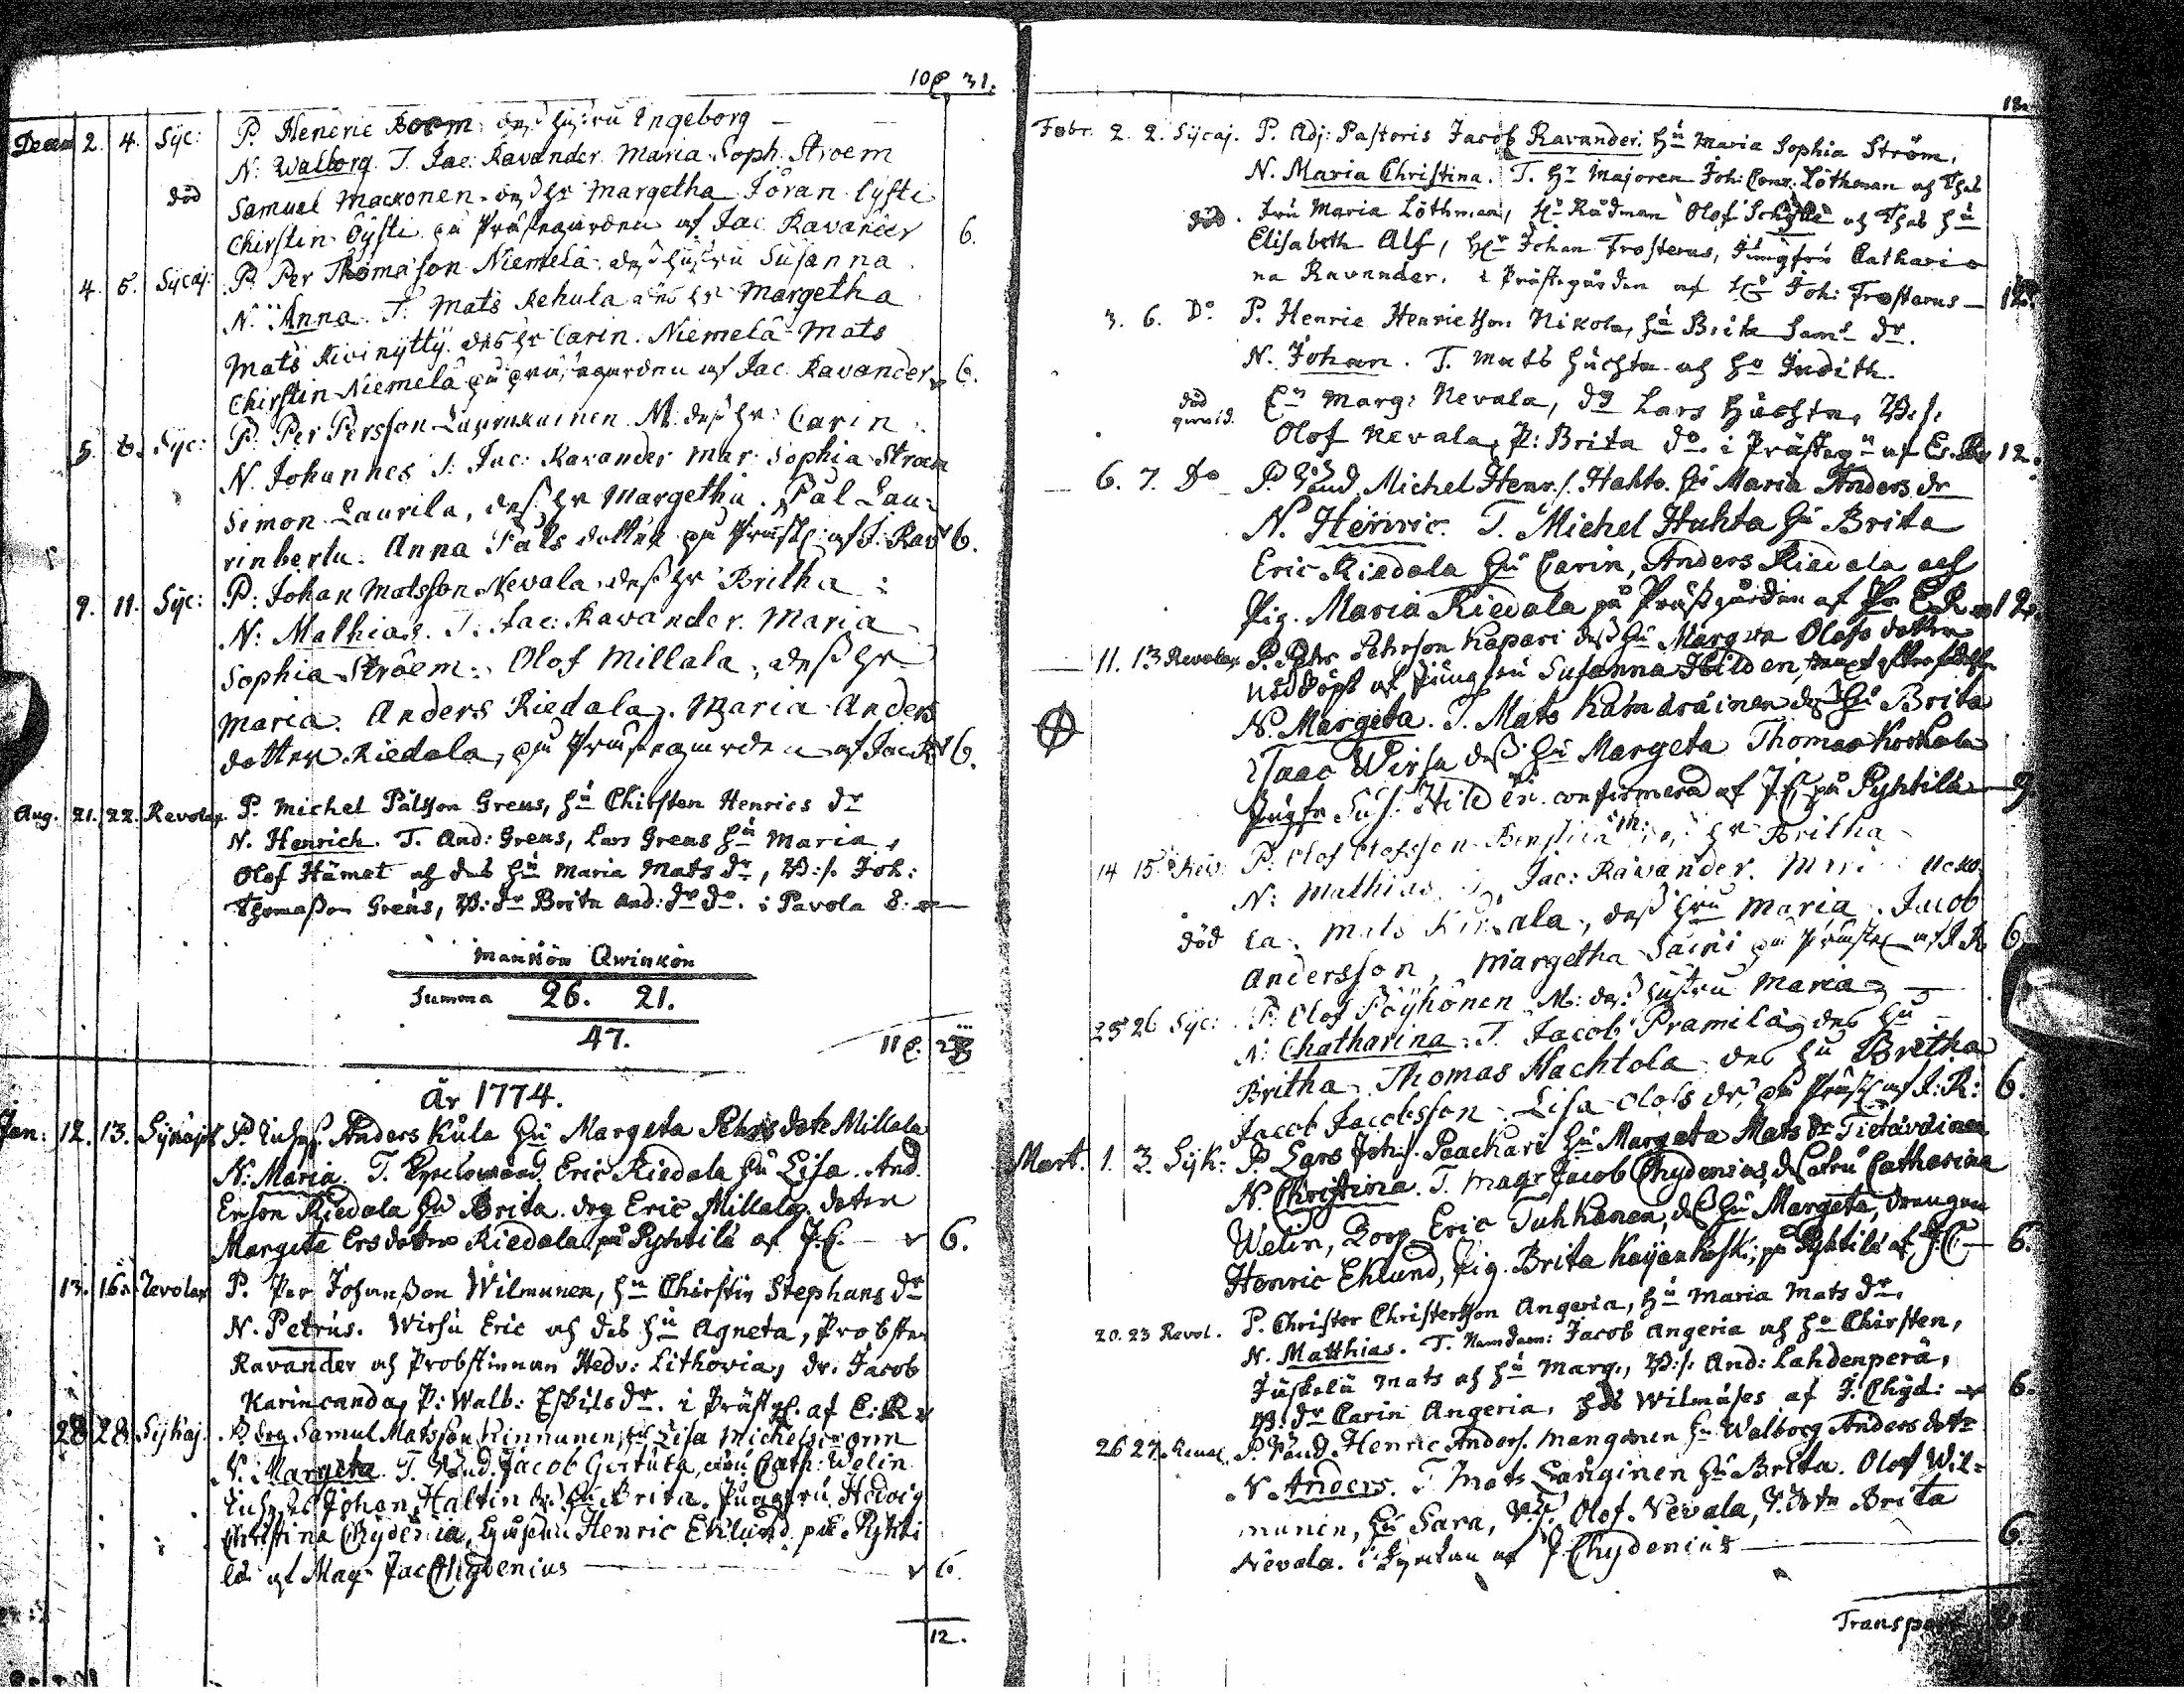 10 31.
Decem 2. 4. Syc: P. Heneric Boem. deß hustru Ingeborg
N: Walborg. T. Jac: Ravander. Maria Soph: Stroem
död Samuel Mackonen. deß hr Margetha Jöran Öysti
Chirstin Öysti på Prästegården af Jac Ravander 6.
4. 5. Sycaj: P. Per Thomasson Niemelä. deß hustru Susanna
N. Anna. T. Mats Rehula des hr Margetha
Mats Kivinytty. des hr Carin. Niemelä Mats
Chirstin Niemelä på prästegården af Jac. Ravander 6.
5. 6. Syc: P. Per Persson M. deß hr: Carin
N. Johannes T. Jac: Ravander Mar: Sophia Stroem
Simon Laurila, deß hr Margetha. Pål Lau-
rinbertu. Anna Påls dotter på Präste: af J. Rav 6.
9. 11. Syc: P. Johan Matsson Nevala deß hr Britha
N: Mathias. T. Jac: Ravander. Maria
Sophia Ström. Olof Millala, deß hr
Maria. Anders Riedala. Maria Anders
dotter Riedala, på Prästegården af Jac R 6.
Aug. 21. 22. Revolax P. Michel Pålsson Greus, hu Chirsten Henrics dr
N. Henrich. T. And: Greus, Lars Greus hu Maria,
Olof Hämet och des hu Maria Mats dr, B:s. Joh:
Thomasson Greus, B: dr Brita And: dr do. i Pavola 8.
Mankön Qwinkön
Summa 26. 21.
47.
År 1774.
Jan: 12. 13. Sykajok P. Anders Kula hu Margeta Pehrs dotr Millala
N: Maria. T. Eric Riedala hu Lisa. And.
Erson Riedala hu Brita. drg Eric Millala dotern
Margeta Ersdotter Riedala på Pyhtilä af J. C. 6.
13. 16. Revolax P. Per Johansson Wilmunen, hu Chirstin Stephans dr
N. Petrus. Wirsu Eric och des hu Agneta, Probsten
Ravander och Probstinnan Hedv: Lithovia, dr. Jacob
Karincanda, P: Walb: Eskils dr. i Prästg. af E. R.
28 28 Sykaj. P. drg Samul Matsson Kinnunen, hu Lisa Michelsdr
N. Margeta. T. Jacob Gertuta, Cath: Welin
Johan Haltin deß hu Brita. Jungfru Hedvig
Christina Chydenia, Henric Eklund på Pyhti
lä af Mag. Jac Chydenius 6.
12.
Febr. 2. 2. Sycaj. P. Adj: Pastoris Jacob Ravander. hu Maria Sophia Ström.
N. Maria Christina. T. Hr Majoren Joh: Conr: Löthman och Thes
död. fru Maria Löthman, Hr Rådman Olof och Thes hu
Elisabeth Alf, Hr Johan Frosterus, Jungfru Cathari
na Ravander. i Prästegården af Hr Joh: Frosterus 12.
3. 6. Do P. Henric Henricsson Nikola, hu Brita Sams dr.
N. Johan. T. Mats Huchta och hu Judith.
död Marg: Nevala, dg Lars Huchta, B:s.
Olof Nevala, P: Brita do. i Prästeg. af Er. R 12.
6. 7. Do P. Michel Henr.s. Hahto. hu Maria Anders dr
N. Henric. T. Michel Huhta hu Brita
Eric Riedala hu Carin, Anders Riedala och
Pig. Maria Riedala på Prästgården af E. R. 12.
11. 13 Revolax P. Pehr Pehrson Kapari deß hu Margeta Olofs dotter
nöddöpt af jungfru Susanna Hilden,
N. Margeta. T. Mats Kämäräinen deß hu Brita
Isaac Wirsu deß hu Margeta Thomas Koskela
Jugfr Sus. Hilden. confirmerad af J. C. på Pyhtilä 9
14 15. Rev: P. Olof Olofsson hr Britha
N: Mathias. T. Jac: Ravander.
död Mats deß hru Maria. Jacob
Andersson, Margetha Saini på Präste af J. R. 6.
25 26 Syc: P. Olof Pöyhönen M: deß hustru Maria
N: Chatharina. T. Jacob Pramila, des hu
Britha. Thomas Hachtola des hu Britha
Jacob Jacobsson. Lisa Olofs dr, på Präst: af J: R: 6.
Mart. 1. 3. Syk: P. Lars Joh.s. Paackari hu Margeta Mats dr Tietäväinen
N. Christina. T. Magr Jacob Chydenius, deß fru Catharina
Welin, Borg. Eric Tuhkanen, deß hu Margeta, Drengen
Henric Eklund, pig. Brita på Pyhtilä af J. C. 6.
20. 23 Revol. P. Christer Christersson Angeria, hu Maria Mats dr.
N. Matthias. T. Jacob Angeria och hu Chirsten,
Juskelä Mats och hu Marg., B:s. And: Lahdenperä,
B: dr Carin Angeria, hos Wilmases af J. Chyd: 6.
26 27. P. Henric Anders. Mangonen hu Walborg Anders dotr
N. Anders. T Mats Lauginen hu Brita. Olof Wil-
munen, hu Sara, Olof Nevala, Brita
Nevala. i Kyrckan af J. Chydenius 6.
Transport